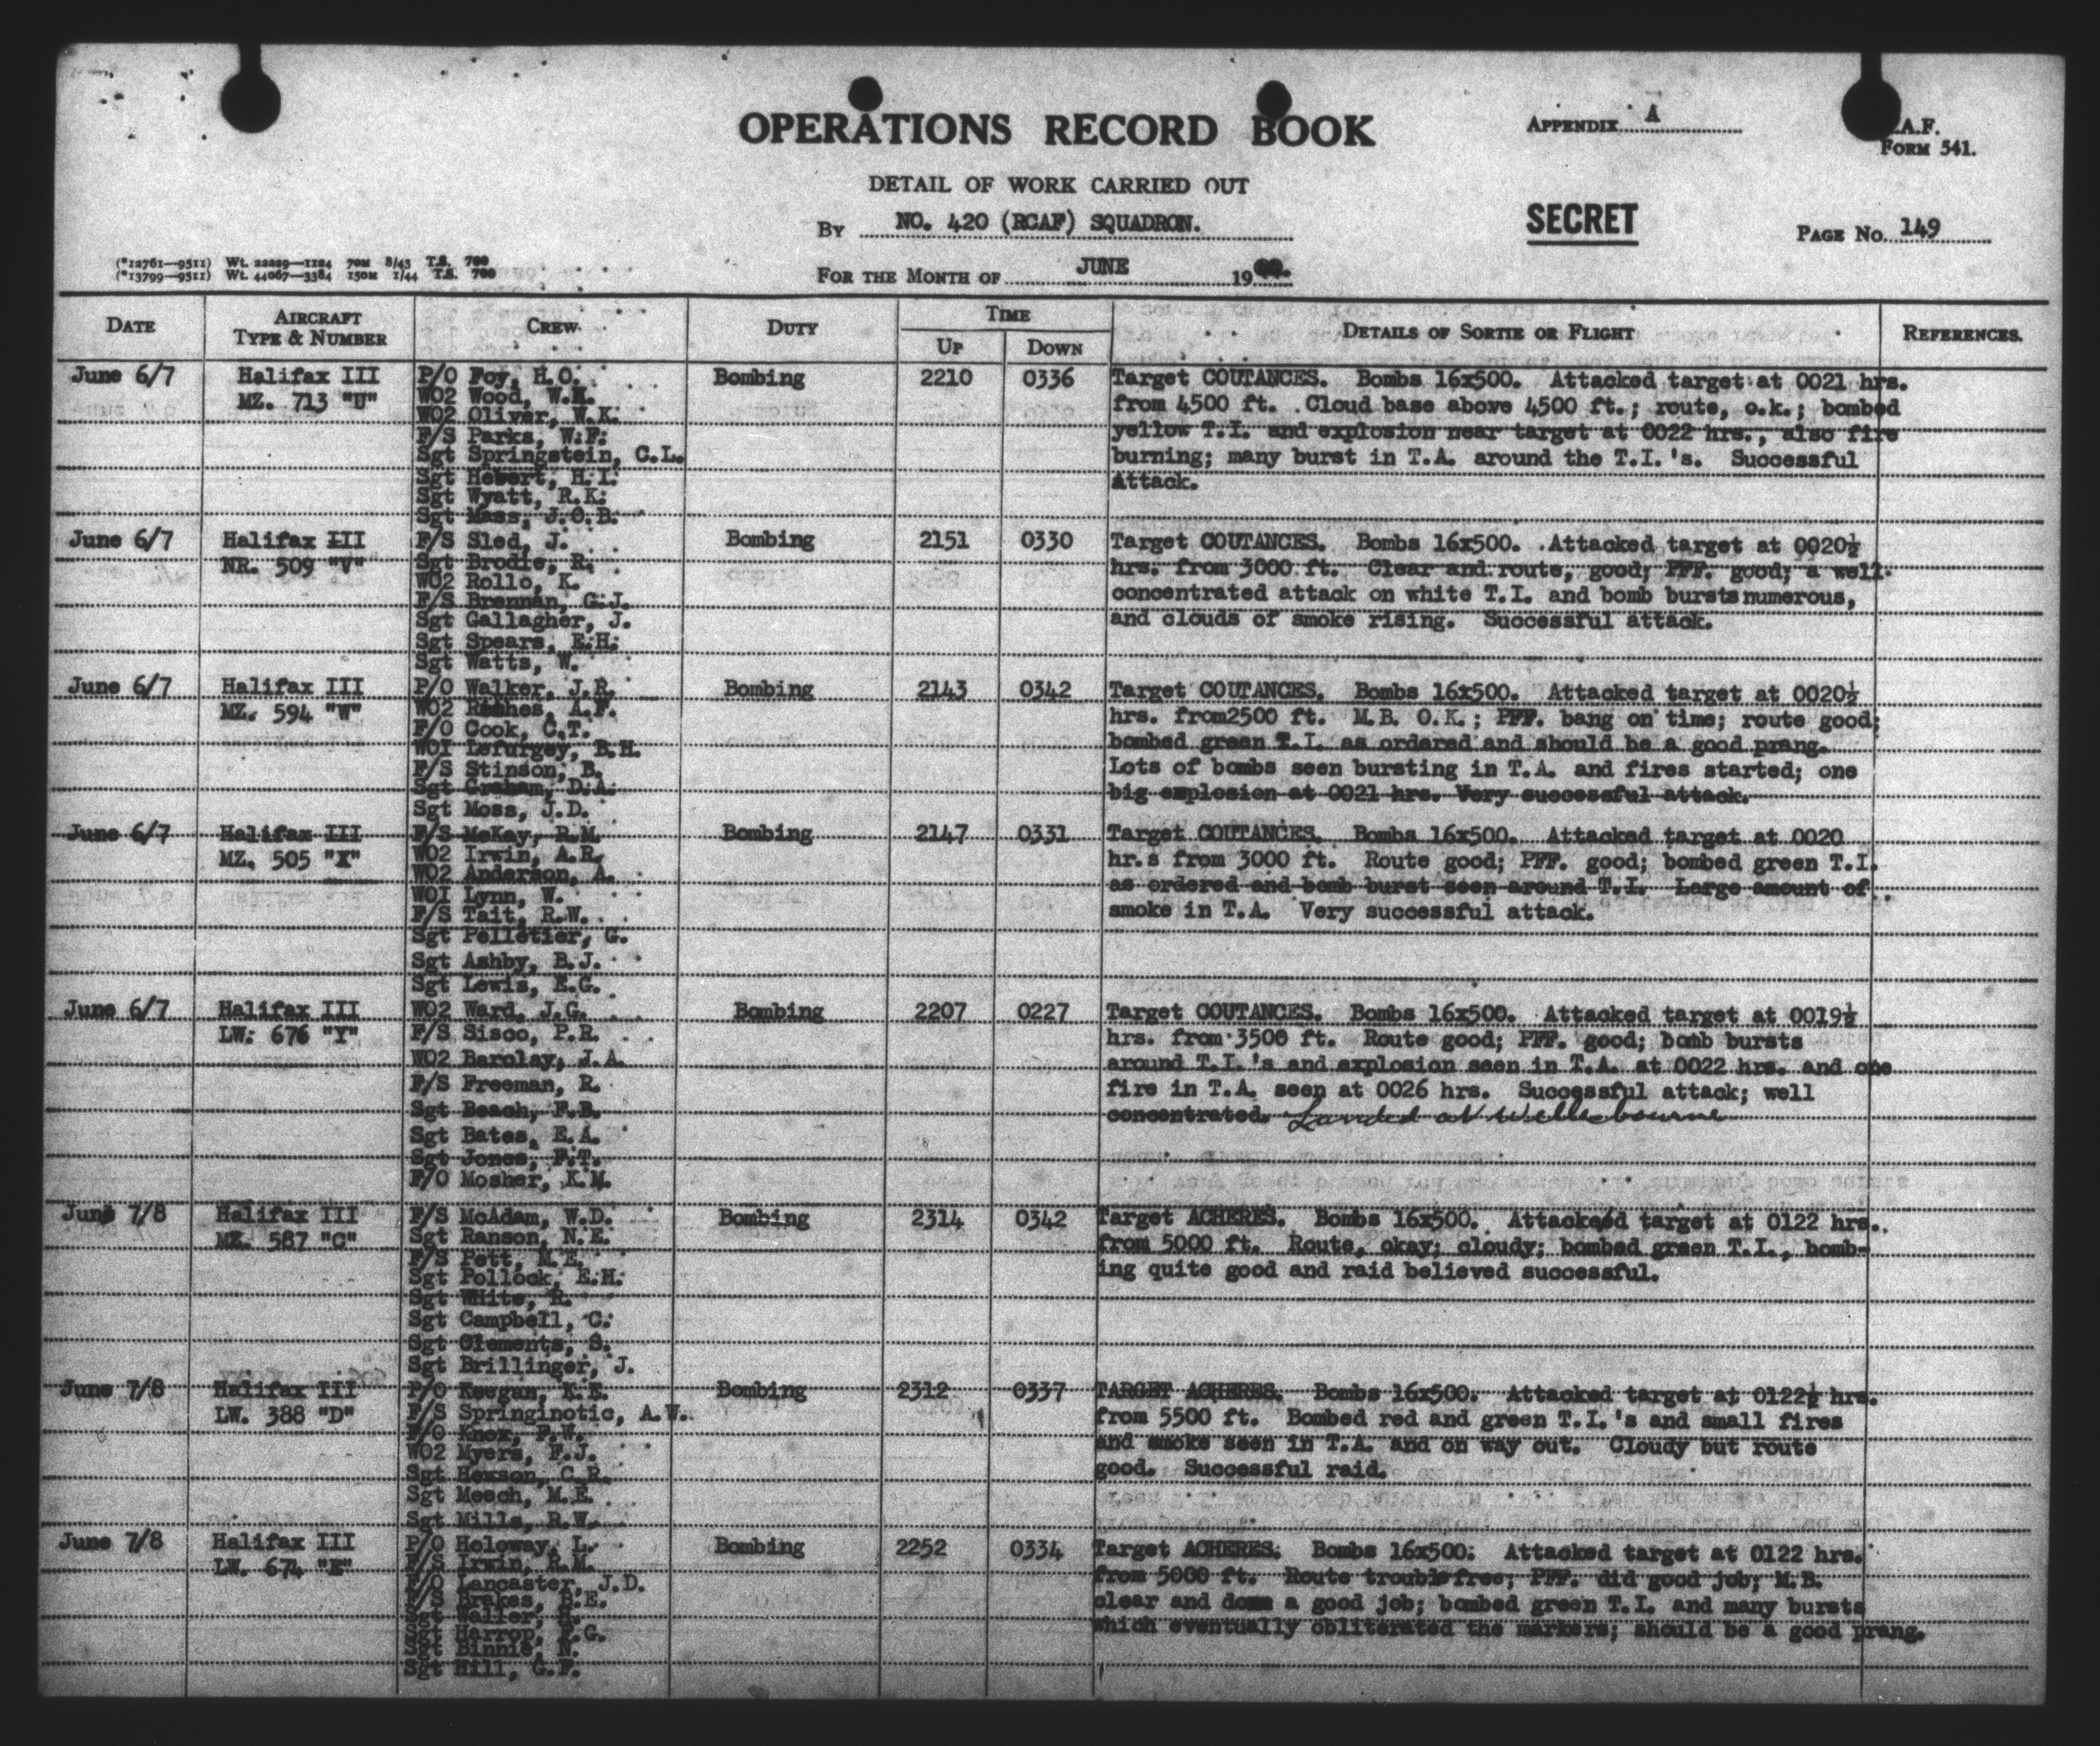 OPERATIONS RECORD BOOK
APPENDIX A
A.F.
FORM 541.
DETAIL OF WORK CARRIED OUT
BY NO. 420 (RCAF) SQUADRON.
SECRET
PAGE No. 149
(*12761—9511) Wt. 22229—1104 70M 8/43 T.S. 700
(*13799—9511) Wt. 44067—3384 150M 1/44 T.S. 700
FOR THE MONTH OF JUNE 19
DATE AIRCRAFT TYPE & NUMBER CREW DUTY TIME UP DOWN DETAILS OF SORTIE OR FLIGHT REFERENCES.
June 6/7 Halifax III P/O Foy, H.O. Bombing 2210 0336 Target COUTANCES. Bombs 16x500. Attacked target at 0021 hrs.
MZ. 713 "U" WO2 Wood, W.H. from 4500 ft. Cloud base above 4500 ft.; route, o.k.; bombed
WO2 Oliver, W.K. yellow T.I. and explosion near target at 0022 hrs., also fire
F/S Parks, W.F. burning; many burst in T.A. around the T.I.'s. Successful
Sgt Springstein, C.L. Attack.
Sgt Hebert, H.I.
Sgt Wyatt, R.K.
Sgt Mass, J.O.B.
June 6/7 Halifax III F/S Sled, J. Bombing 2151 0330 Target COUTANCES. Bombs 16x500. Attacked target at 0020½
NR. 509 "V" Sgt Brodie, R. hrs. from 3000 ft. Clear and route, good; PFF. good; a well
WO2 Rollo, K. concentrated attack on white T.I. and bomb bursts numerous,
F/S Brennan, G.J. and clouds of smoke rising. Successful attack.
Sgt Gallagher, J.
Sgt Spears, E.H.
Sgt Watts, W.
June 6/7 Halifax III P/O Walker, J.R. Bombing 2143 0342 Target COUTANCES. Bombs 16x500. Attacked target at 0020½
MZ. 594 "W" WO2 A.F. hrs. from2500 ft. M.B. O.K.; PFF. bang on time; route good;
F/O Cook, C.T. bombed green T.I. as ordered and should be a good prang.
WO1 Lefurgey, B.H. Lots of bombs seen bursting in T.A. and fires started; one
F/S Stinson, B. big explosion at 0021 hrs. Very successful attack.
Sgt Graham, D.A.
Sgt Moss, J.D.
June 6/7 Halifax III F/S McKay, R.M. Bombing 2147 0331 Target COUTANCES. Bombs 16x500. Attacked target at 0020
MZ. 505 "X" WO2 Irwin, A.R. hr.s from 3000 ft. Route good; PFF. good; bombed green T.I.
WO2 Anderson, A. as ordered and bomb burst seen around T.I. Large amount of
WO1 Lynn, W. smoke in T.A. Very successful attack.
F/S Tait, R.W.
Sgt Pelletier, G.
Sgt Ashby, B.J.
Sgt Lewis, E.G.
June 6/7 Halifax III WO2 Ward, J.G. Bombing 2207 0227 Target COUTANCES. Bombs 16x500. Attacked target at 0019½
LW. 676 "Y" F/S Sisco, P.R. hrs. from 3500 ft. Route good; PFF. good; bomb bursts
WO2 Barclay, J.A. around T.I.'s and explosion seen in T.A. at 0022 hrs. and one
F/S Freeman, R. fire in T.A. seen at 0026 hrs. Successful attack; well
Sgt Beach, F.B. concentrated. Landed at Wellesbourne
Sgt Bates, E.A.
Sgt Jones, F.T.
F/O Mosher, K.M.
June 7/8 Halifax III F/S McAdam, W.D. Bombing 2314 0342 Target ACHERES. Bombs 16x500. Attackedd target at 0122 hrs.
MZ. 587 "C" Sgt Ranson, N.E. from 5000 ft. Route, okay; cloudy; bombed green T.I., bomb-
F/S Pett, M.E. ing quite good and raid believed successful.
Sgt Pollock, E.H.
Sgt WHite, R.
Sgt Campbell, C.
Sgt Clements, S.
Sgt Brillinger, J.
June 7/8 Halifax III P/O Keegan, K.E. Bombing 2312 0337 TARGET ACHERES. Bombs 16x500. Attacked target at 0122½ hrs.
LW. 388 "D" F/S Springinotic, A.W. from 5500 ft. Bombed red and green T.I.'s and small fires
F/O Knox, F.W. and smoke seen in T.A. and on way out. Cloudy but route
WO2 Myers, F.J. good. Successful raid.
Sgt Hexson, C.R.
Sgt Meech, M.E.
Sgt Mills, R.W.
June 7/8 Halifax III P/O Holoway, L. Bombing 2252 0334 Target ACHERES. Bombs 16x500. Attacked target at 0122 hrs.
LW. 674 "E" F/S Irwin, R.M. from 5000 ft. Route troublefree; PFF. did good job; M.B.
F/O Lancaster, J.D. clear and done a good job; bombed green T.I. and many bursts
F/S Brakes, B.E. which eventually obliterated the markers; should be a good prang.
Sgt Waller, H.
Sgt Harrop, F.G.
Sgt Binnie, N.
Sgt Hill, G.F.